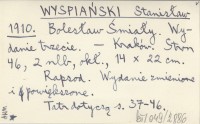 WYSPIAŃSKI Stanisław
1910. Bolesław Śmiały. Wy-
danie trzecie. — Kraków. Stron
46, 2 nlb, okł., 14 x 22 cm.
Rapsod. Wydanie zmienione
i powiększone.
Tatr dotyczą s. 37-46.